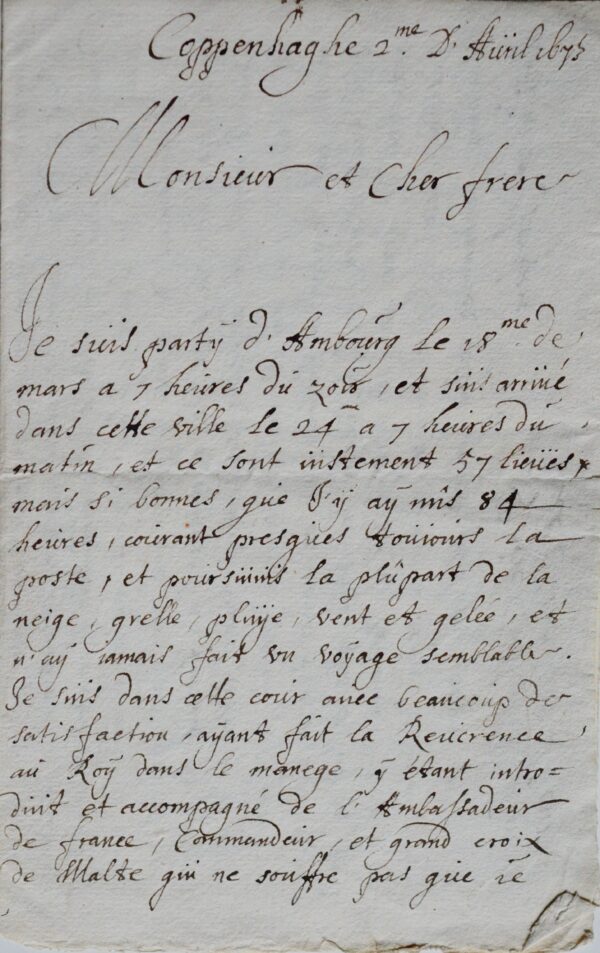 Coppenhaghe 2.me D'Aüril 1675
Monsieür et Cher frere
Je suis partÿ d'Ambourg le 18me de
mars a 7 heures du zoir, et suis arriué
dans cette ville le 24 a 7 heures du
matin, et ce sont iustement 57 lieües,
mais si bonnes, que J'y aÿ mis 84
heures, courant presques touiours la
poste, et poursuiuis la plüpart de la
neige, grelle, plüÿe, vent et gelée, et
n'aÿ iamais fait vn voyage semblable.
Je suis dans cette cour auec beaucoup de
satisfaction, aÿant fait la Reuerence
au Roÿ dans le manege, ÿ étant intro=
düit et accompagné de l'Ambassadeur
de france, Commandeur, et grand croix
de Malte qui ne souffre pas que ie